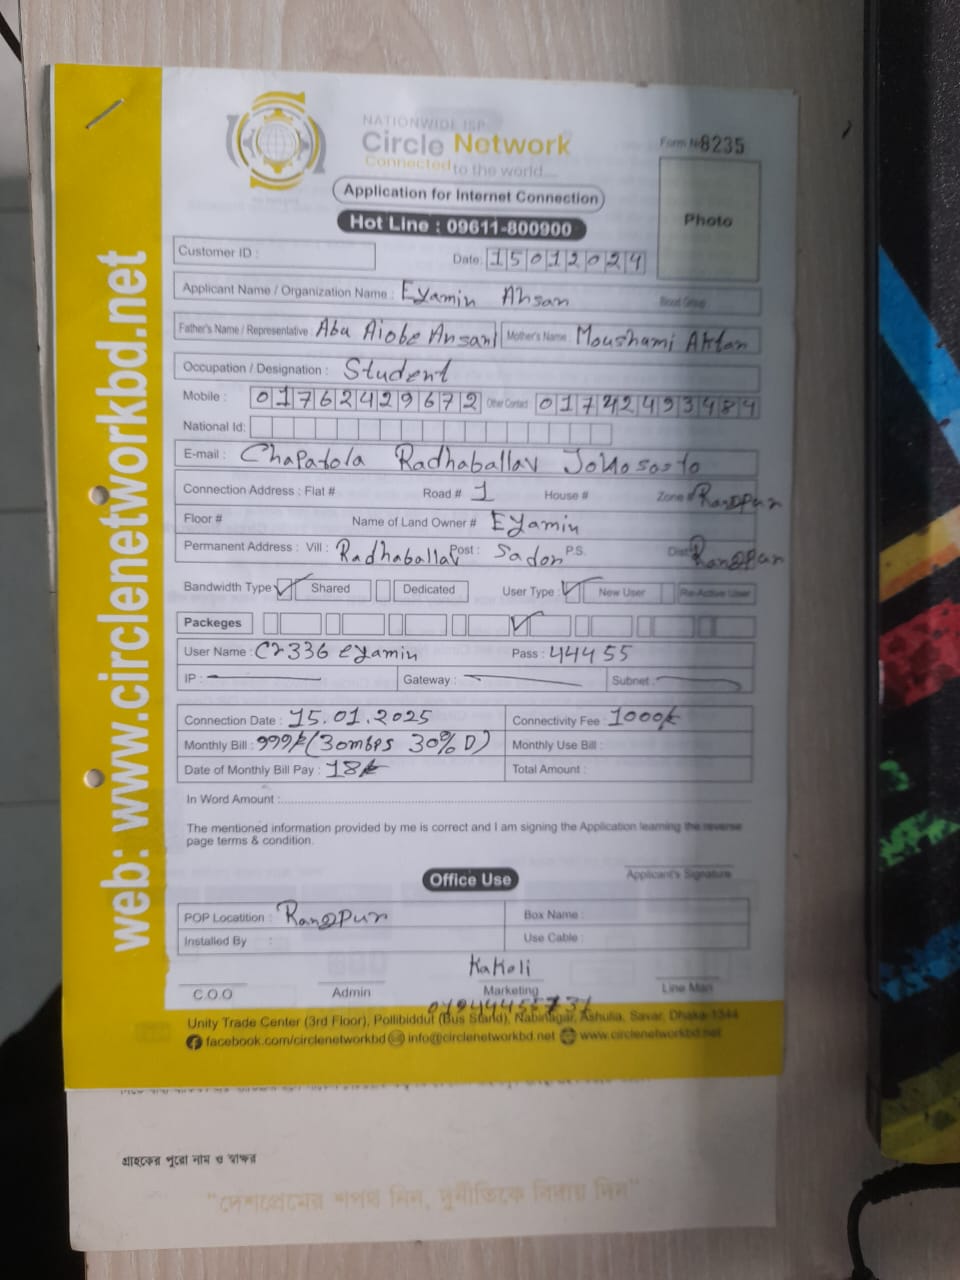 NATIONWIDE ISP
Circle Network
Connected to the world....
Form № 8235
Application for Internet Connection
Hot Line : 09611-800900
Photo
Customer ID :
Date: 15012024
Applicant Name / Organization Name : Eyamin Ahsan Blood Group
Father's Name / Representative Abu Aiobe Ansani Mother's Name : Moushami Aktar
Occupation / Designation : Student
Mobile : 01762429672 Other Contact 01742493484
National Id:
E-mail : Chapatola Radhaballav
Connection Address : Flat # Road # 1 House # Zone # Rangpur
Floor # Name of Land Owner # Eyamin
Permanent Address : Vill : Radhaballav Post : Sador P.S. Dist Rangpur
Bandwidth Type Shared Dedicated User Type : New User Re-Active User
Packeges
User Name : Cr336 eyamin Pass : 44455
IP : Gateway : Subnet :
Connection Date : 15.01.2025 Connectivity Fee : 1000/-
Monthly Bill : 999/- (30mbps 30% D) Monthly Use Bill :
Date of Monthly Bill Pay : 18 Total Amount :
In Word Amount :
The mentioned information provided by me is correct and I am signing the Application learning the reverse
page terms & condition.
Applicant's Signature
Office Use
POP Locatition : Rangpur Box Name :
Installed By : Use Cable :
Kakoli
C.O.O Admin Marketing Line Man
Unity Trade Center (3rd Floor), Pollibiddut (Bus Stand), Nabinagar, Ashulia, Savar, Dhaka-1344
facebook.com/circlenetworkbd info@circlenetworkbd.net www.circlenetworkbd.net
web: www.circlenetworkbd.net
গ্রাহকের পুরো নাম ও স্বাক্ষর
"দেশপ্রেমের শপথ নিন, দুর্নীতিকে বিদায় দিন"